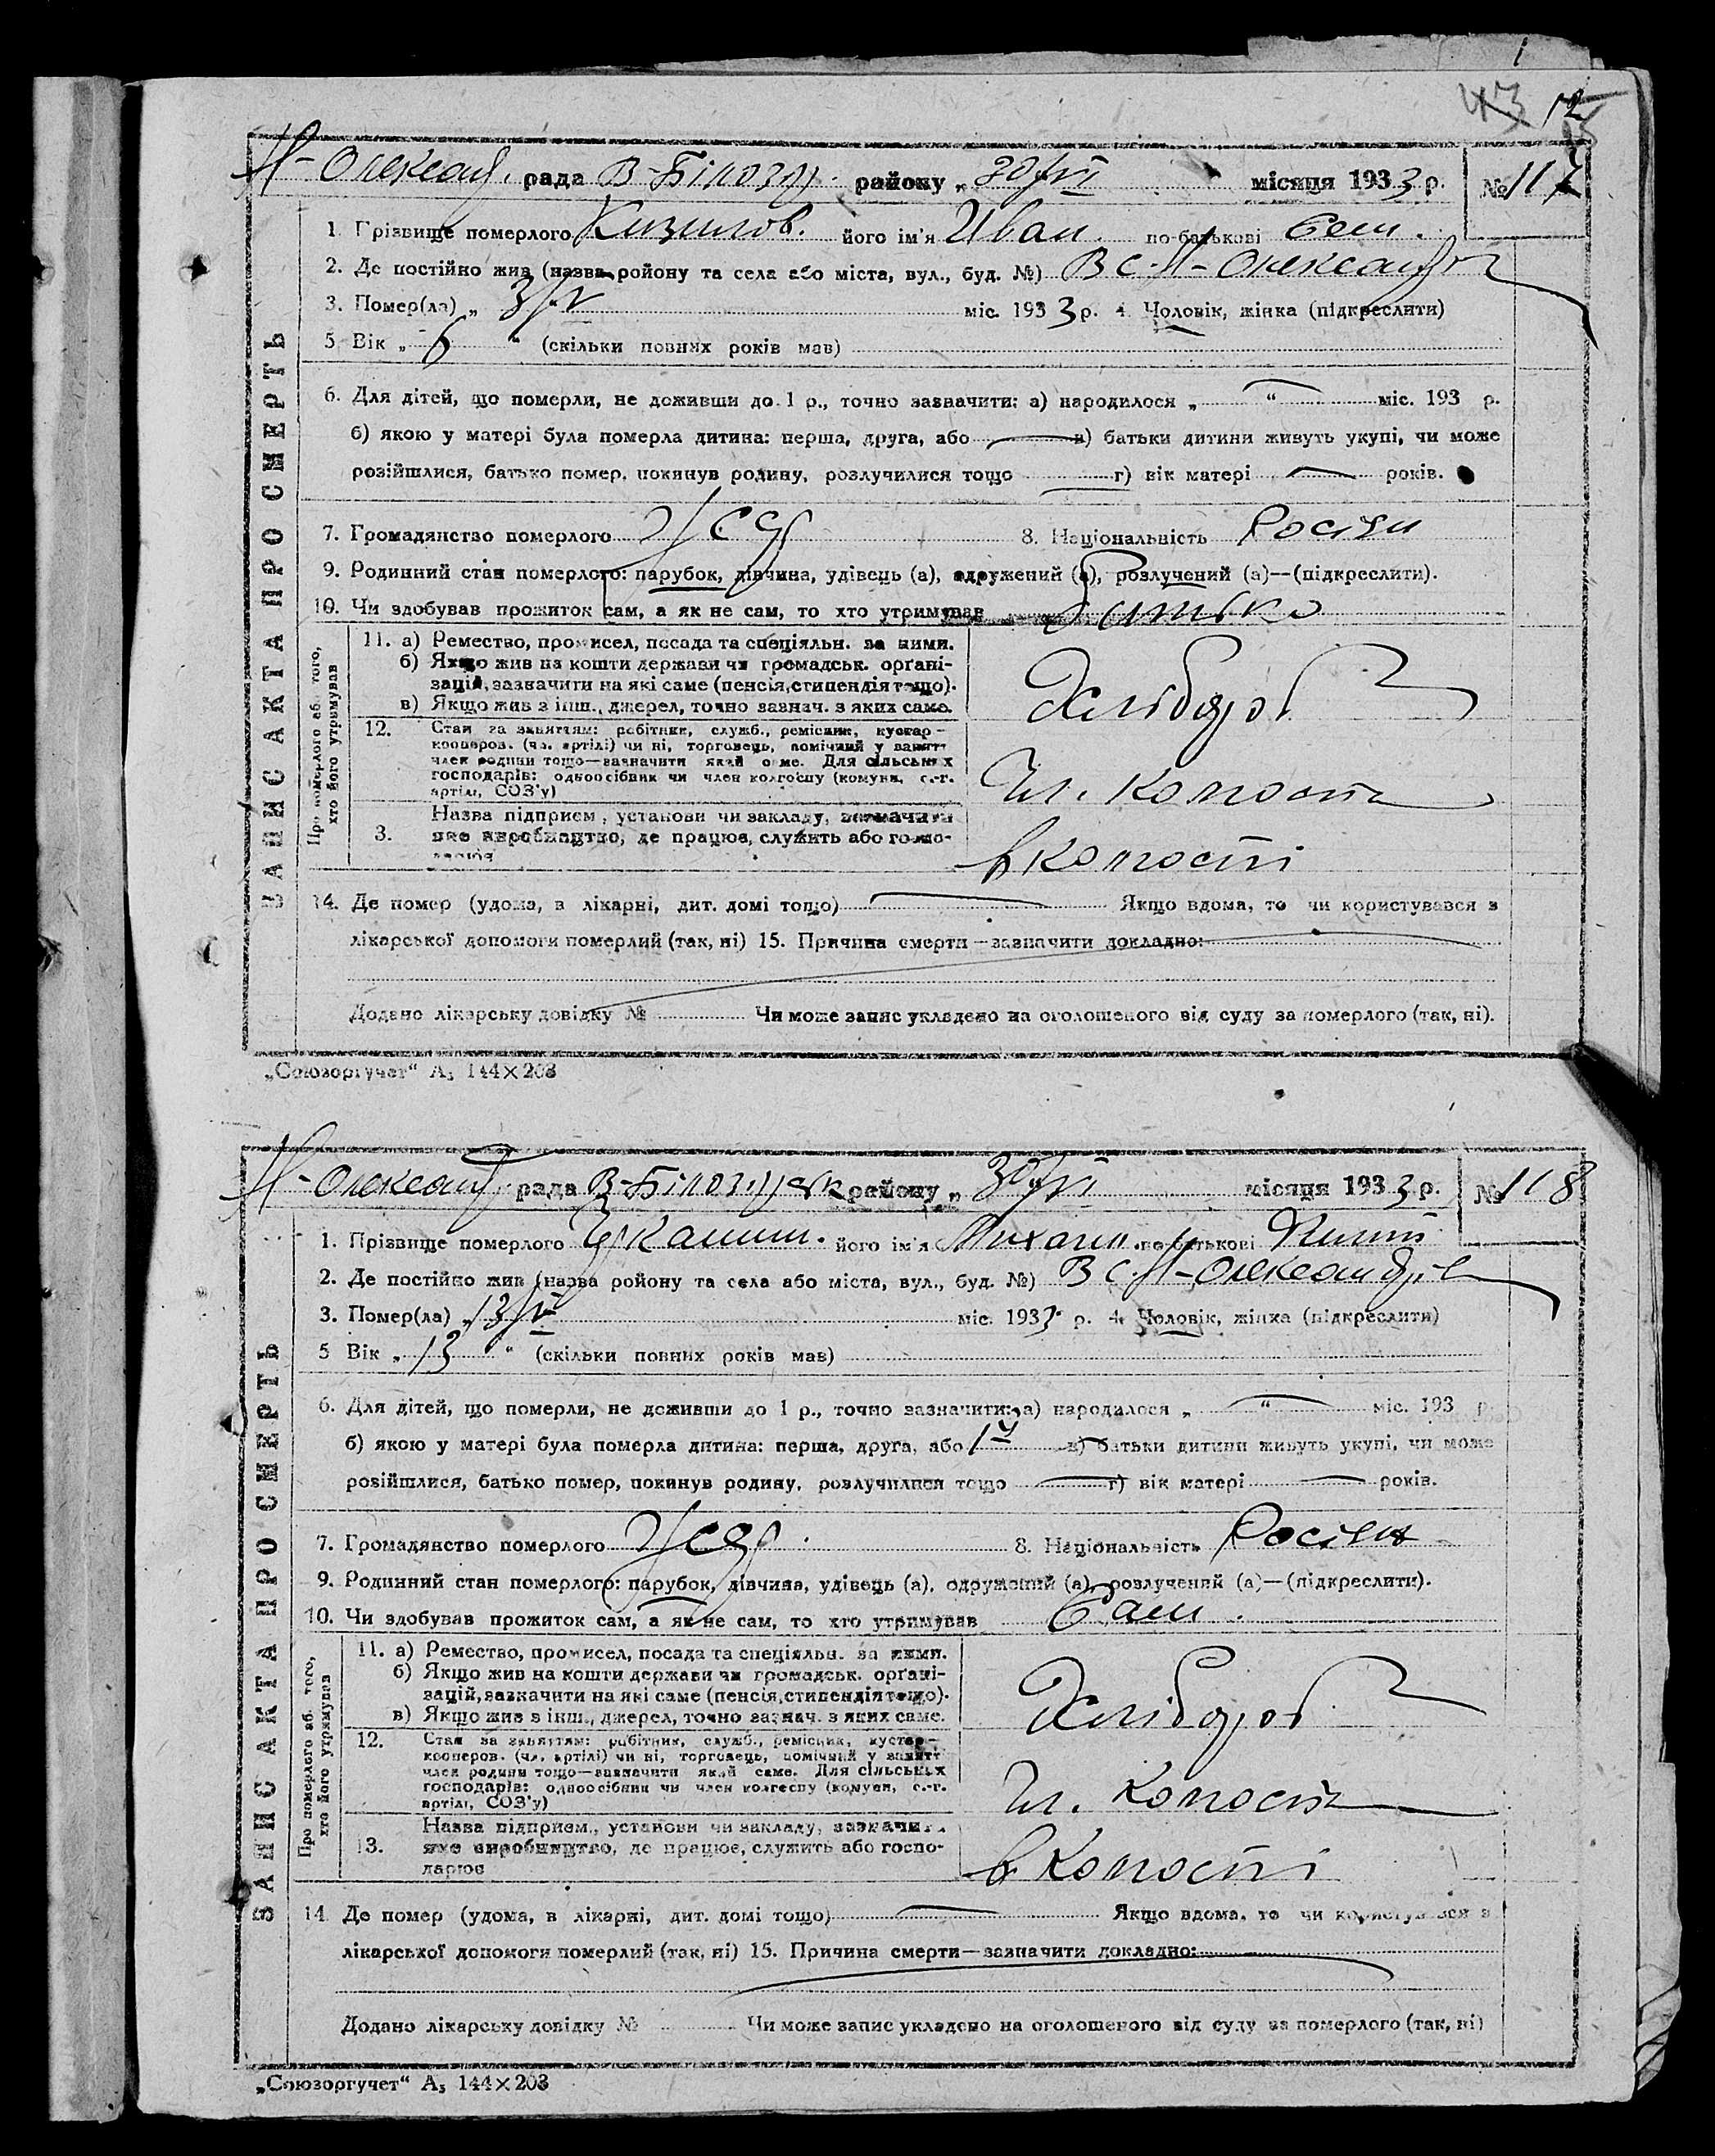 43 12
Н-Олександ. рада В-Білозер. району „ 30/VI місяця 1933 р. № 117
ЗАПИС АКТА ПРО СМЕРТЬ
1. Прізвище померлого його ім'я Иван. по-батькові Сем.
2. Де постійно жив (назва ройону та села або міста, вул., буд. №) В с. Н-Олександр
3. Помер(ла) „ 3/V міс. 1933 р. 4. Чоловік, жінка (підкреслити)
5. Вік „ 6 “ (скільки повних років мав)
6. Для дітей, що померли, не доживши до 1 р., точно зазначити: а) народилося „ “ міс. 193 р.
б) якою у матері була померла дитина: перша, друга, або — в) батьки дитини живуть укупі, чи може
розійшлися, батько помер, покинув родину, розлучилися тощо — г) вік матері — років.
7. Громадянство померлого УССР 8. Національність Росіян
9. Родинний стан померлого: парубок, дівчина, удівець (а), одружений (а), розлучений (а)—(підкреслити).
10. Чи здобував прожиток сам, а як не сам, то хто утримував Батько
Про померлого або того, хто його утримував
11. а) Ремество, промисел, посада та спеціяльн. за ними.
б) Якщо жив на кошти держави чи громадськ. орґані-
зацій, зазначити на які саме (пенсія, стипендія тощо).
в) Якщо жив з інш., джерел, точно зазнач. з яких саме.
Хлібороб
12. Стан за заняттям: робітник, служб., ремісник, кустар-
кооперов. (чл. артілі) чи ні, торговець, помічний у занятт
член родини тощо—зазначити який саме. Для сільських
господарів: одноосібник чи член колгоспу (комуни, с.-г.
артілі, СОЗ'у)
Чл. колгоспа
3. Назва підприєм., установи чи закладу, зазначити
яке виробництво, де працює, служить або госпо-
дарює
в колгоспі
14. Де помер (удома, в лікарні, дит. домі тощо) — Якщо вдома, то чи користувався з
лікарської допомоги померлий (так, ні) 15. Причина смерти—зазначити докладно:
Додано лікарську довідку № Чи може запис укладено на оголошеного від суду за померлого (так, ні).
„Союзоргучет“ А₅ 144×203
Н-Олександ. рада В-Білозерськ району „ 30/VI місяця 1933 р. № 118
ЗАПИС АКТА ПРО СМЕРТЬ
1. Прізвище померлого його ім'я Михаил. по-батькові
2. Де постійно жив (назва ройону та села або міста, вул., буд. №) В с. Н-Олександрів
3. Помер(ла) „ 13/V міс. 1933 р. 4. Чоловік, жінка (підкреслити)
5 Вік „ 13 “ (скільки повних років мав)
6. Для дітей, що померли, не доживши до 1 р., точно зазначити: а) народилося „ “ міс. 193 р
б) якою у матері була померла дитина: перша, друга, або в) батьки дитини живуть укупі, чи може
розійшлися, батько помер, покинув родину, розлучилися тощо — г) вік матері — років.
7. Громадянство померлого УССР. 8. Національність Росіян
9. Родинний стан померлого: парубок, дівчина, удівець (а), одружений (а), розлучений (а)—(підкреслити).
10. Чи здобував прожиток сам, а як не сам, то хто утримував Сам.
Про померлого аб. того, хто його утримував
11. а) Ремество, промисел, посада та спеціяльн. за ними.
б) Якщо жив на кошти держави чи громадськ. орґані-
зацій, зазначити на які саме (пенсія, стипендія тощо).
в) Якщо жив з інш., джерел, точно зазнач. з яких саме.
Хлібороб
12. Стан за заняттям: робітник, служб., ремісник, кустар-
кооперов. (чл. артілі) чи ні, торговець, помічний у занятт
член родини тощо—зазначити який саме. Для сільських
господарів: одноосібник чи член колгоспу (комуни, с.-г.
артілі, СОЗ'у)
Чл. колгоспа
13. Назва підприєм., установи чи закладу, зазначити
яке виробництво, де працює, служить або госпо-
дарює
в колгоспі
14 Де помер (удома, в лікарні, дит. домі тощо) — Якщо вдома, то чи користувався з
лікарської допомоги померлий (так, ні) 15. Причина смерти—зазначити докладно:
Додано лікарську довідку № Чи може запис укладено на оголошеного від суду за померлого (так, ні)
„Союзоргучет“ А₅ 144×203